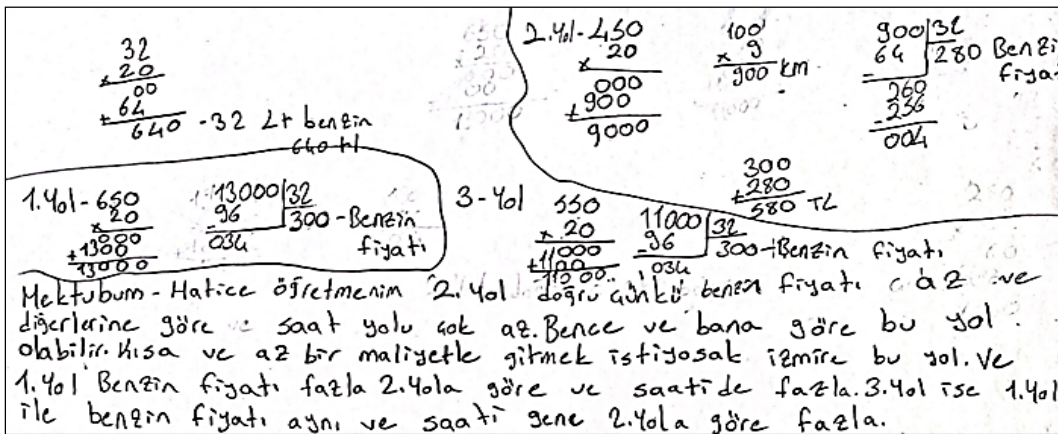 32
x 20
00
+ 64
640 - 32 Lt benzin
640 tl
2.Yol - 450
x 20
000
+ 900
9000
100
x 9
900 km
900 | 32
64 | 280 Benzi
fiya
260
- 256
004
300
+ 280
580 TL
1.Yol - 650
x 20
000
+ 1300
13000
13000 | 32
- 96 | 300 - Benzin
034 fiyatı
3 - Yol 550
x 20
11000 | 32
- 96 | 300 - Benzin fiyatı
034
Mektubum - Hatice öğretmenim 2.Yol doğru çünkü benzin fiyatı az ve
diğerlerine göre saat yolu çok az. Bence ve bana göre bu yol
olabilir. Kısa ve az bir maliyetle gitmek istiyosak izmire bu yol. Ve
1.Yol Benzin fiyatı fazla 2.Yola göre ve saati de fazla. 3.Yol ise 1.Yol
ile benzin fiyatı aynı ve saati gene 2.Yola göre fazla.